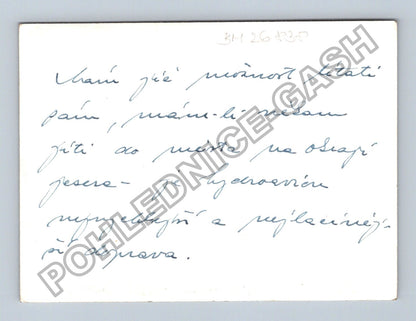 BH 26 1330
Mám též možnost létati
sám, mám-li někam
jíti do města na okraji
jezera - je hydroavión
nejrychlejší a nejlacinněj-
ší doprava.
POHLEDNICE-GASH